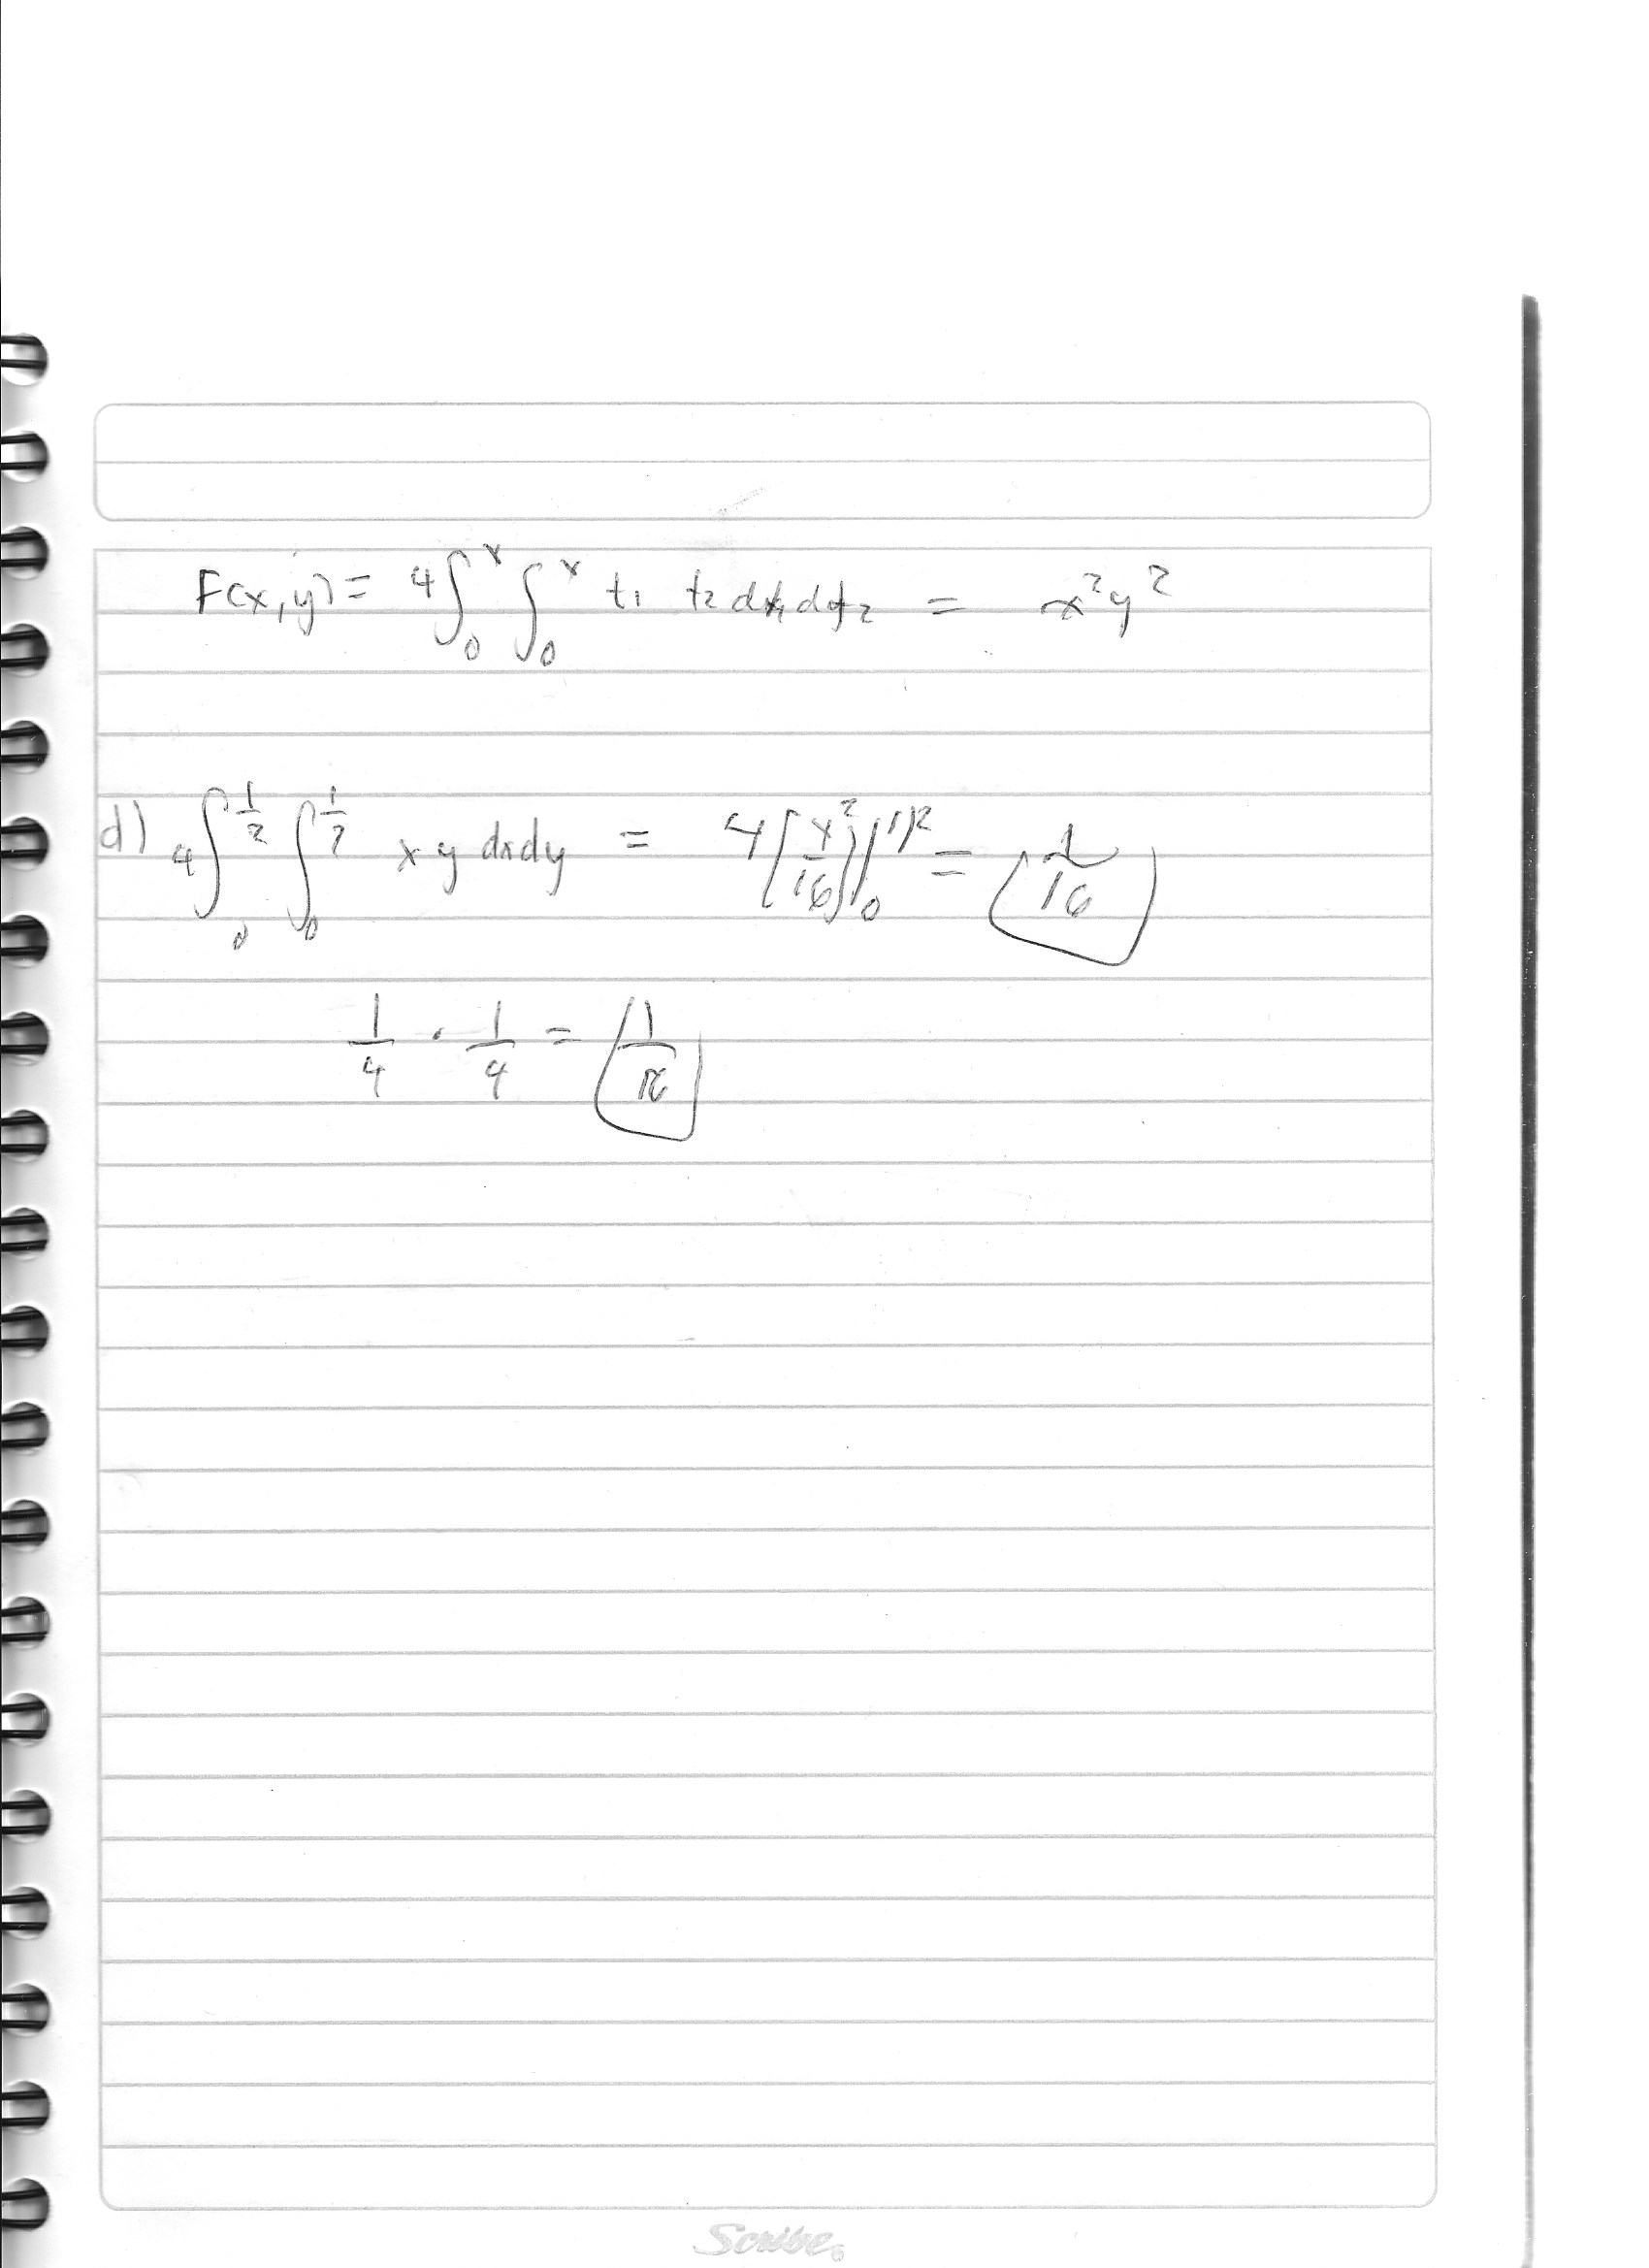 F(x,y) = 4∫₀ˣ ∫₀ˣ t₁ t₂ dt₁ dt₂ = x²y²
d) 4∫₀^{1/2} ∫₀^{1/2} xy dxdy = 4[x²/16]|₀^{1/2} = 1/16
1/4 · 1/4 = 1/16
Scribe